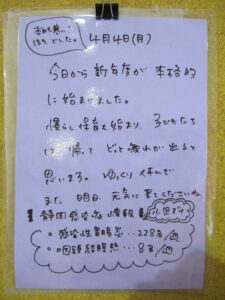 本日も寒い
13℃でした。
4月4日(月)
今日から新年度が本格的
に始まりました。
慣らし保育も始まり、子どもたち
は帰って どっと疲れが出ると
思います。ゆっくり休んで
また明日 元気に来てくださいね。
静岡感染症情報
小児科
○感染性胃腸炎…228名
○咽頭結膜熱…8名